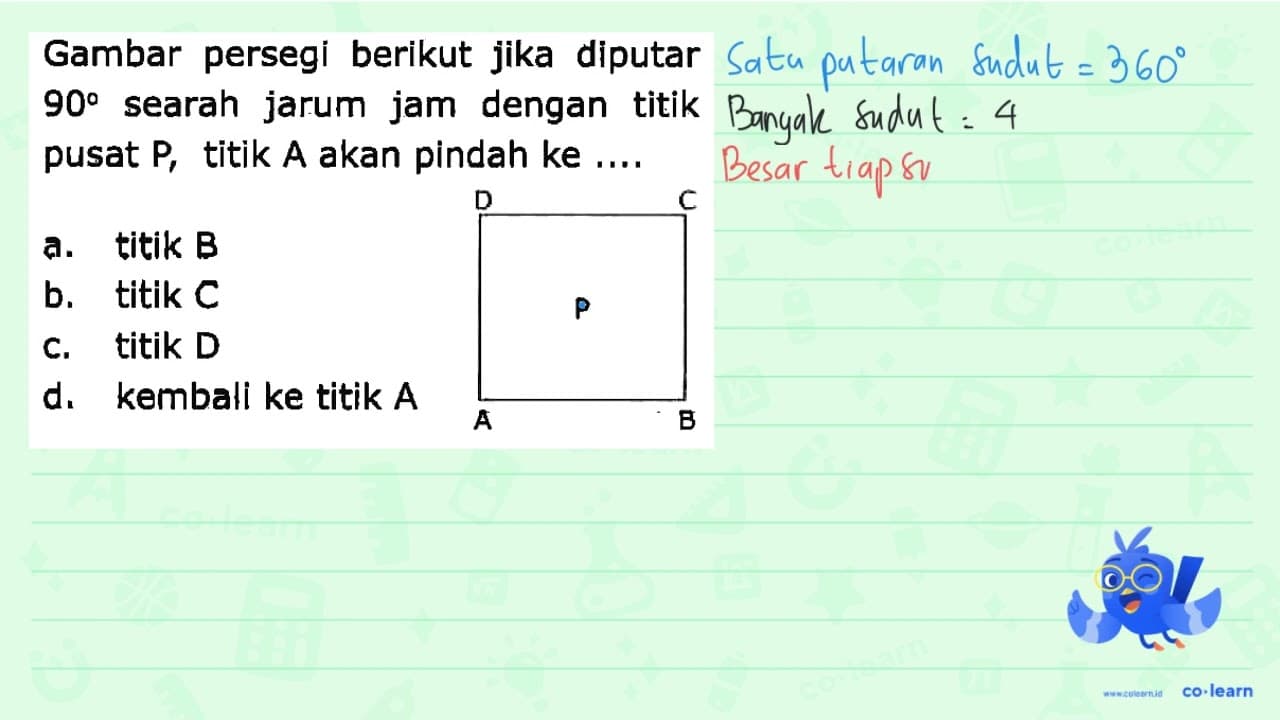 Gambar persegi berikut jika diputar
90° searah jarum jam dengan titik
pusat P, titik A akan pindah ke ....
a. titik B
b. titik C
c. titik D
d. kembali ke titik A
D C
P
A B
Satu putaran sudut = 360°
Banyak sudut = 4
Besar tiap su
co·learn
co·learn
co·learn
www.colearn.id co·learn